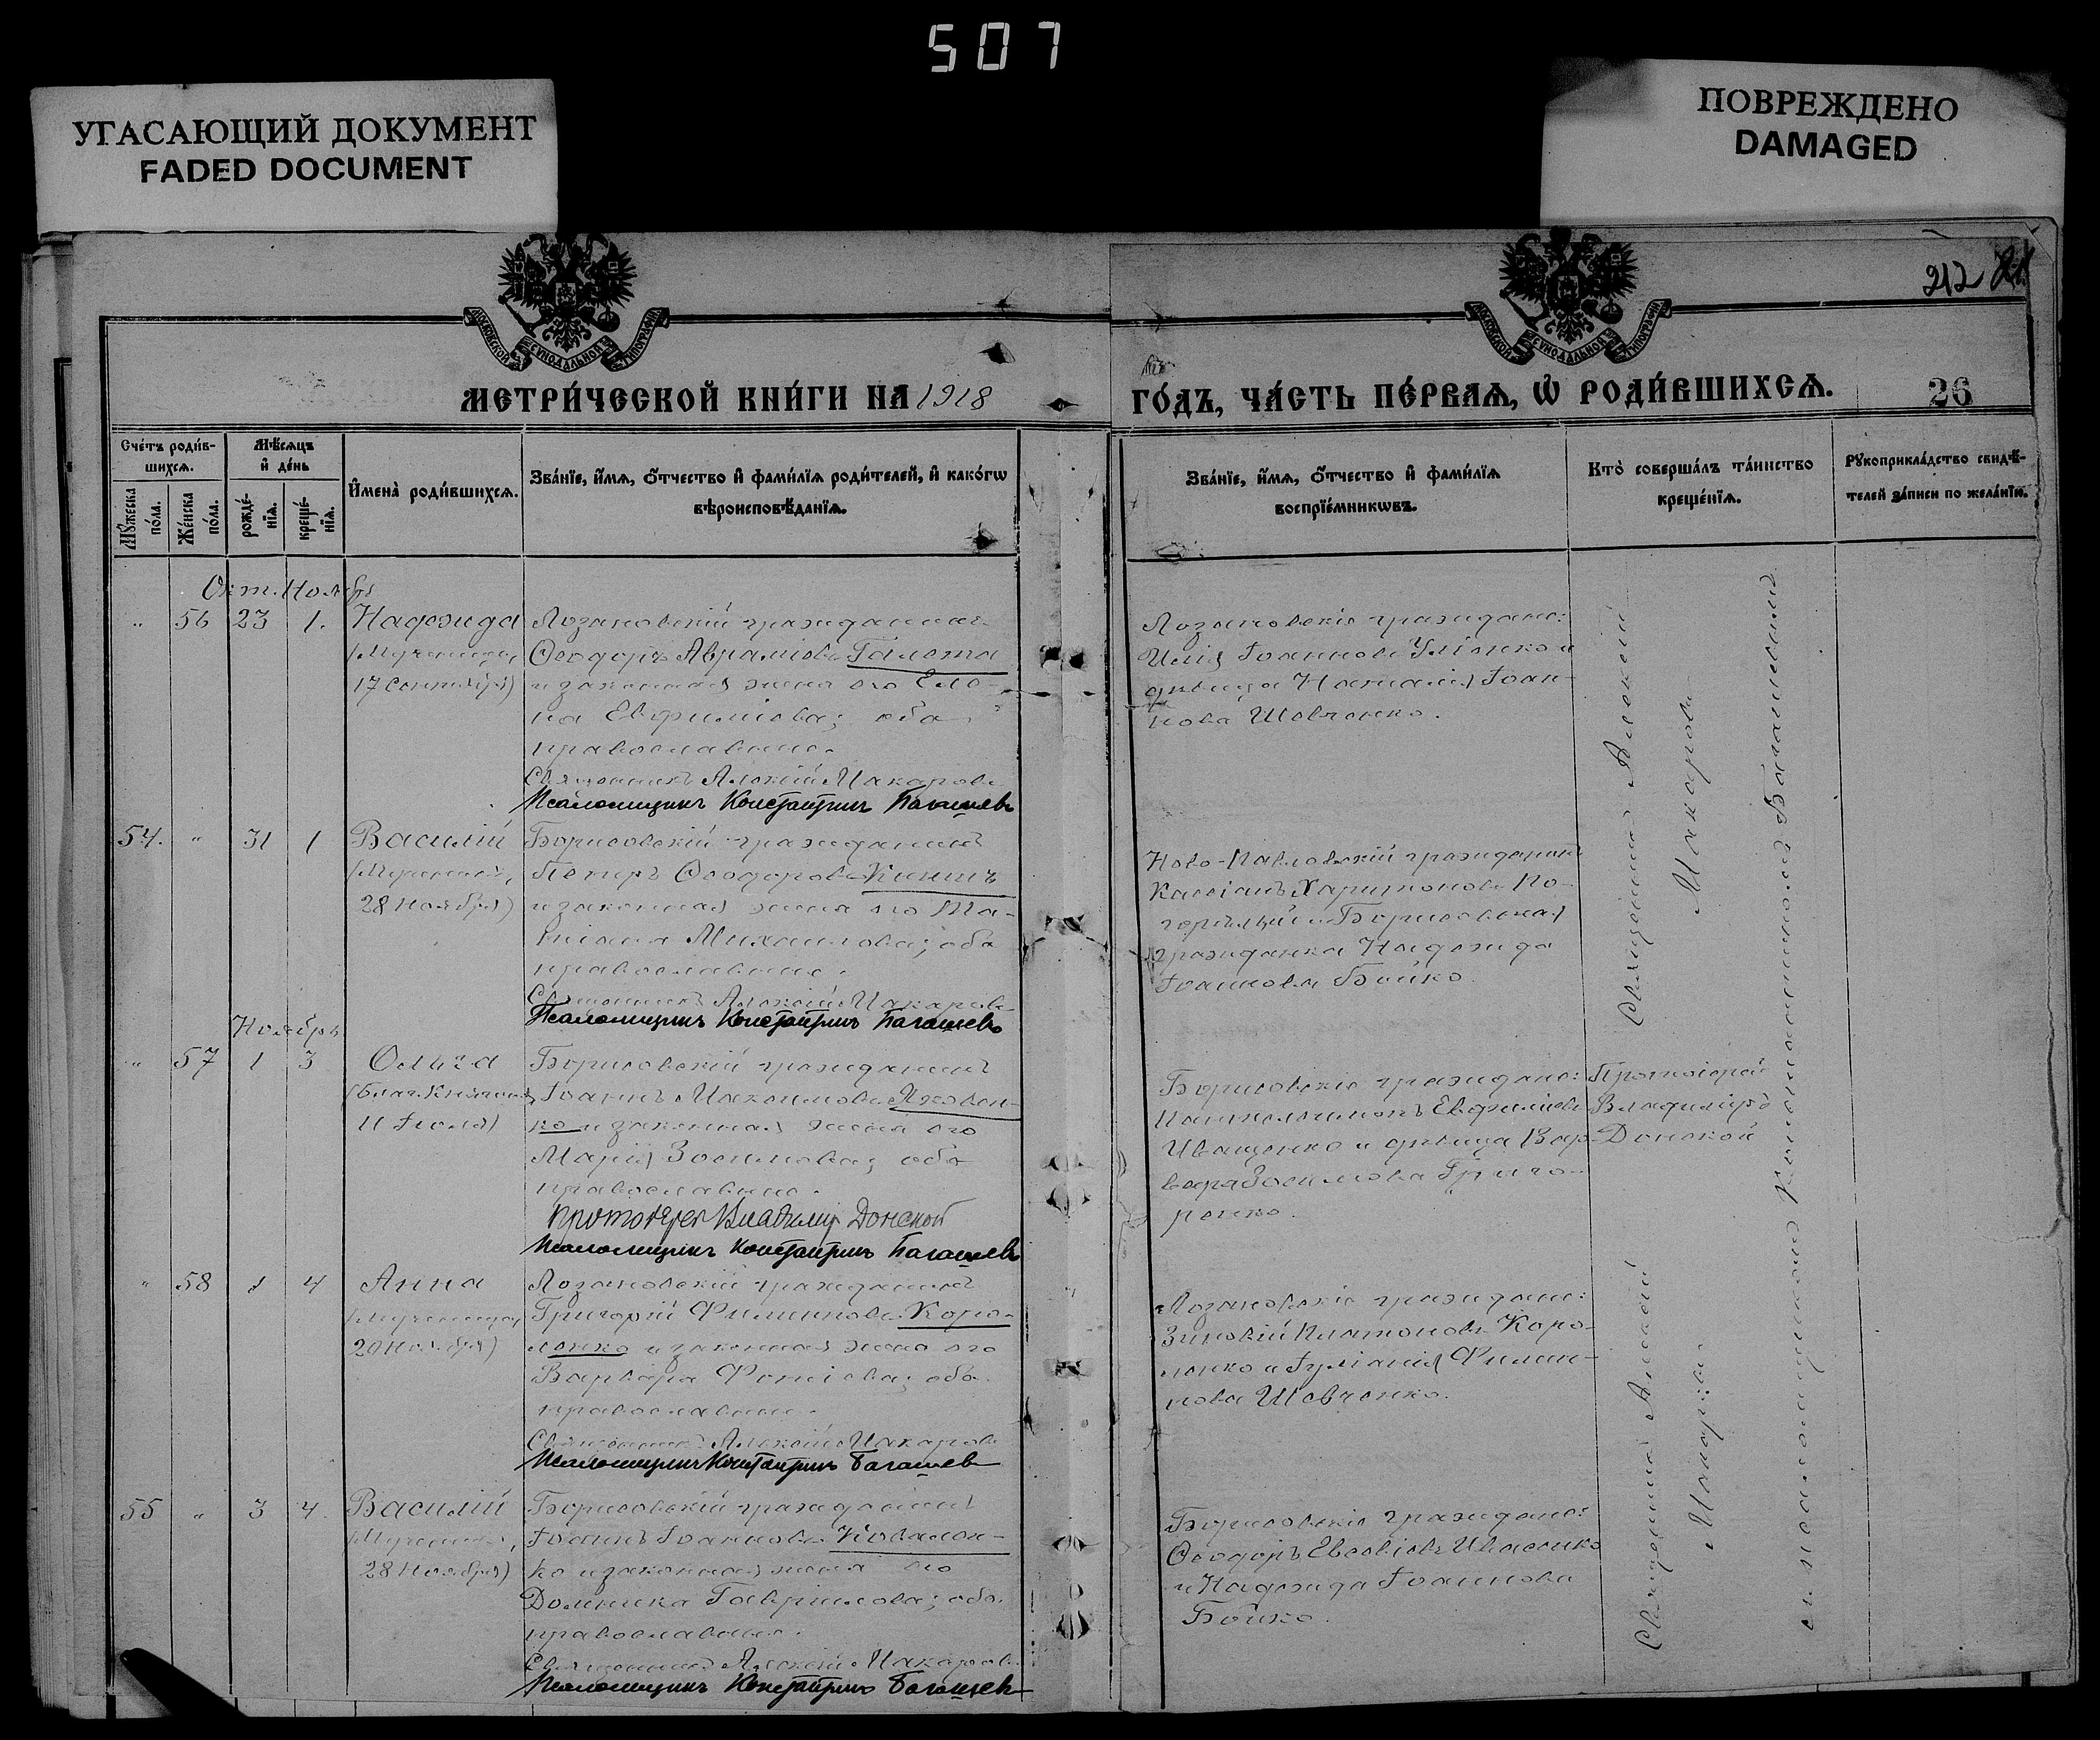 507
УГАСАЮЩИЙ ДОКУМЕНТ
FADED DOCUMENT
ПОВРЕЖДЕНО
DAMAGED
МОСКОВСКОЙ СѴНОДАЛЬНОЙ ТИПОГРАФІИ
МОСКОВСКОЙ СѴНОДАЛЬНОЙ ТИПОГРАФІИ
212
МЕТРИ́ЧЕСКОЙ КНИ́ГИ НА 1918
ГО́ДЪ, ЧА́СТЬ ПЕ́РВАѦ, Ѡ РОДИ́ВШИХСѦ.
26
Сче́тъ роди́в-
шихсѧ.
Мꙋ́жеска по́ла.
Же́нска по́ла.
Мѣ́сѧцъ
и҆ де́нь
рожде́-нїѧ.
креще́-нїѧ.
И҆мена̀ роди́вшихсѧ.
Зва́нїе, и҆́мѧ, ѻ҆́тчество и҆ фами́лїѧ роди́телей, и҆ како́гѡ
вѣроисповѣ́данїѧ.
Зва́нїе, и҆́мѧ, ѻ҆́тчество и҆ фами́лїѧ
воспрїе́мникѡвъ.
Кто̀ соверша́лъ та́инство
креще́нїѧ.
Рꙋкоприкла́дство свидѣ́-
телей за́писи по жела́нїю.
Окт. Ноября
" 56 23 1. Надежда
(Мученица,
17 Сентября)
Лозановскій гражданинъ
Ѳеодоръ Авраміовъ Галота
и законная жена его Еле-
на Евфиміова; оба
православные.
Священникъ Алексій Макаровъ
Псаломщикъ Константинъ Багашевъ
Лозановскіе граждане:
Илія Іоанновъ Уліонко и
дѣвица Наталія Іоан-
нова Шевченко.
Священникъ Алексій
Макаровъ
54. " 31 1 Василій
(Мученикъ,
28 Ноября)
Борисовскій гражданинъ
Петръ Ѳеодоровъ
и законная жена его Та-
тіана Михаилова; оба
православные.
Священникъ Алексій Макаровъ
Псаломщикъ Константинъ Багашевъ
Ново-Павловскій гражданинъ
Кассіанъ Харитоновъ По-
горѣлый и Борисовская
гражданка Надежда
Іоаннова Бойко.
Ноября
" 57 1 3 Ольга
(Благ. Княгиня,
11 Іюля)
Борисовскій гражданинъ
Іоаннъ Максимовъ Яковен-
ко и законная жена его
Марія Зосимова; оба
православные.
Протоіерей Владиміръ Донской
Псаломщикъ Константинъ Багашевъ
Борисовскіе граждане:
Пантелеимонъ Евфиміевъ
Иващенко и дѣвица Вар-
вара Зосимова Григо-
ренко.
Протоіерей
Владиміръ
Донской
" 58 1 4 Анна
(Мученица,
20 Ноября)
Лозановскій гражданинъ
Григорій Филипповъ Коро-
ленко и законная жена его
Варвара; оба
православные.
Священникъ Алексій Макаровъ
Псаломщикъ Константинъ Багашев
Лозановскіе граждане:
Зиновій Платоновъ Коро-
ленко и Іуліанія Филип-
пова Шевченко.
Священникъ Алексій
Макаровъ
55 " 3 4. Василій
(Мученикъ,
28 Ноября)
Борисовскій гражданинъ
Іоаннъ Іоанновъ Ковален-
ко и законная жена его
Домника Гавріилова; оба
православные.
Священникъ Алексій Макаровъ
Псаломщикъ Константинъ Багашев
Борисовскіе граждане:
Ѳеодоръ Евсевіевъ Ивасенко
и Надежда Іоаннова
Бойко.
съ псаломщикомъ Константиномъ Багашевымъ